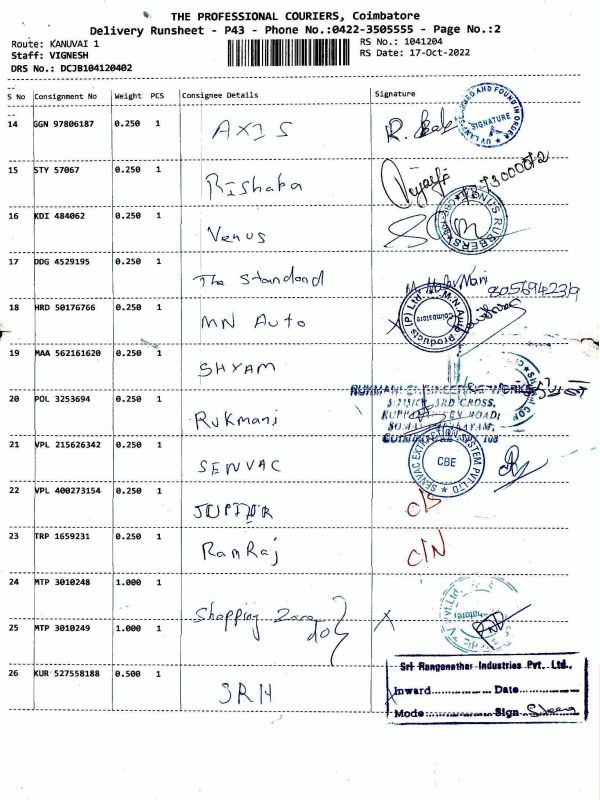 THE PROFESSIONAL COURIERS, Coimbatore
Delivery Runsheet - P43 - Phone No.:0422-3505555 - Page No.:2
Route: KANUVAI 1 RS No.: 1041204
Staff: VIGNESH RS Date: 17-Oct-2022
DRS No.: DCJB104120402
S No Consignment No Weight PCS Consignee Details Signature
14 GGN 97806187 0.250 1 AXIS R.
SIGNATURE
15 STY 57067 0.250 1 Rishaba
16 KDI 484062 0.250 1 Venus
17 DDG 4529195 0.250 1 The Standard
8056942319
18 HRD 50176766 0.250 1 MN Auto
Coimbatore
19 MAA 562161620 0.250 1 SHYAM
RUKMANI ENGINEERING WORKS
3RD CROSS,
20 POL 3253694 0.250 1 Rukmani
21 VPL 215626342 0.250 1 SENVAC
SENVAC EXTRACTION SYSTEM PVT-LTD
CBE
22 VPL 400273154 0.250 1 JUPITER
23 TRP 1659231 0.250 1 RamRaj C/N
24 MTP 3010248 1.000 1 Shopping Zone
25 MTP 3010249 1.000 1 do
26 KUR 527558188 0.500 1 SRH
Sri Ranganathar Industries Pvt. Ltd.,
Inward.............. Date..............
Mode.............. Sign